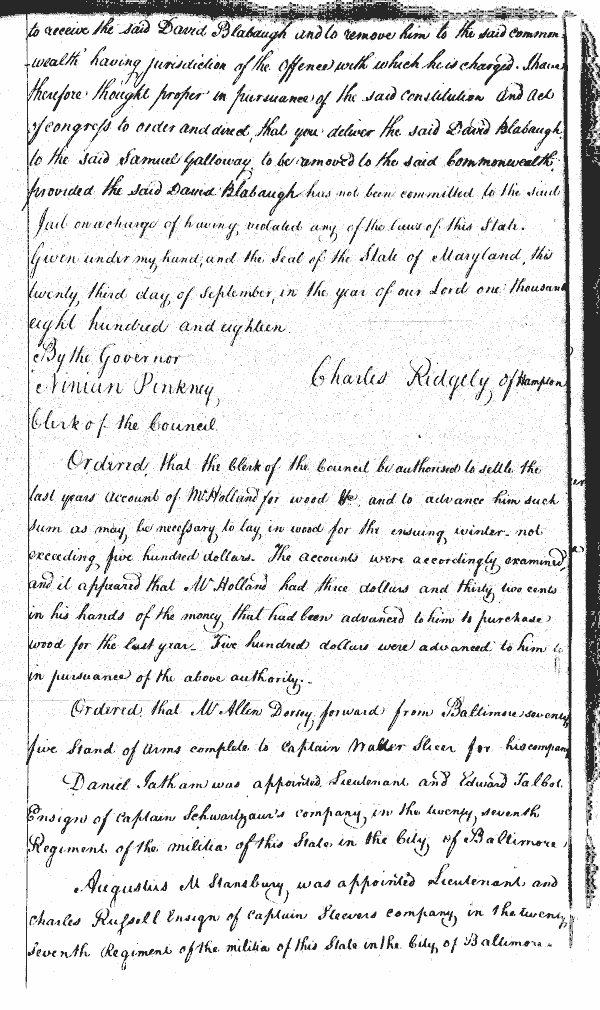 to receive the said David Blabaugh and to remove him to the said common-
-wealth having jurisdiction of the Offence with which he is charged. I have
therefore thought proper in pursuance of the said constitution and act
of congress to order and direct, that you deliver the said David Blabaugh
to the said Samuel Galloway to be removed to the said Commonwealth;
provided the said David Blabaugh has not been committed to the said
Jail on a charge of having violated any of the laws of this State.
Given under my hand, and the Seal of the State of Maryland, this
twenty third day of September, in the year of our Lord one thousand
eight hundred and eighteen.
By the Governor
Ninian Pinkney, Charles Ridgely, of Hampton
Clerk of the Council
Ordered, that the Clerk of the Council be authorised to settle the
last years account of Mr Holland for wood &c, and to advance him such
sum as may be necessary to lay in wood for the ensuing winter - not
exceeding five hundred dollars. The accounts were accordingly examined,
and it appeared that Mr Holland had three dollars and thirty two cents
in his hands of the money that had been advanced to him to purchase
wood for the last year - Five hundred dollars were advanced to him
in pursuance of the above authority. -
Ordered that Mr Allen Dorsey forward from Baltimore seventy
five Stand of arms complete to Captain Slicer for his company
Daniel Tatham was appointed Lieutenant and Edward Talbot
Ensign of Captain Schwartzaur's company, in the twenty seventh
Regiment of the militia of this State in the City of Baltimore
Augustus M Stansbury, was appointed Lieutenant and
Charles Russell Ensign of Captain Steevers company in the twenty
seventh Regiment of the militia of this State in the City of Baltimore -